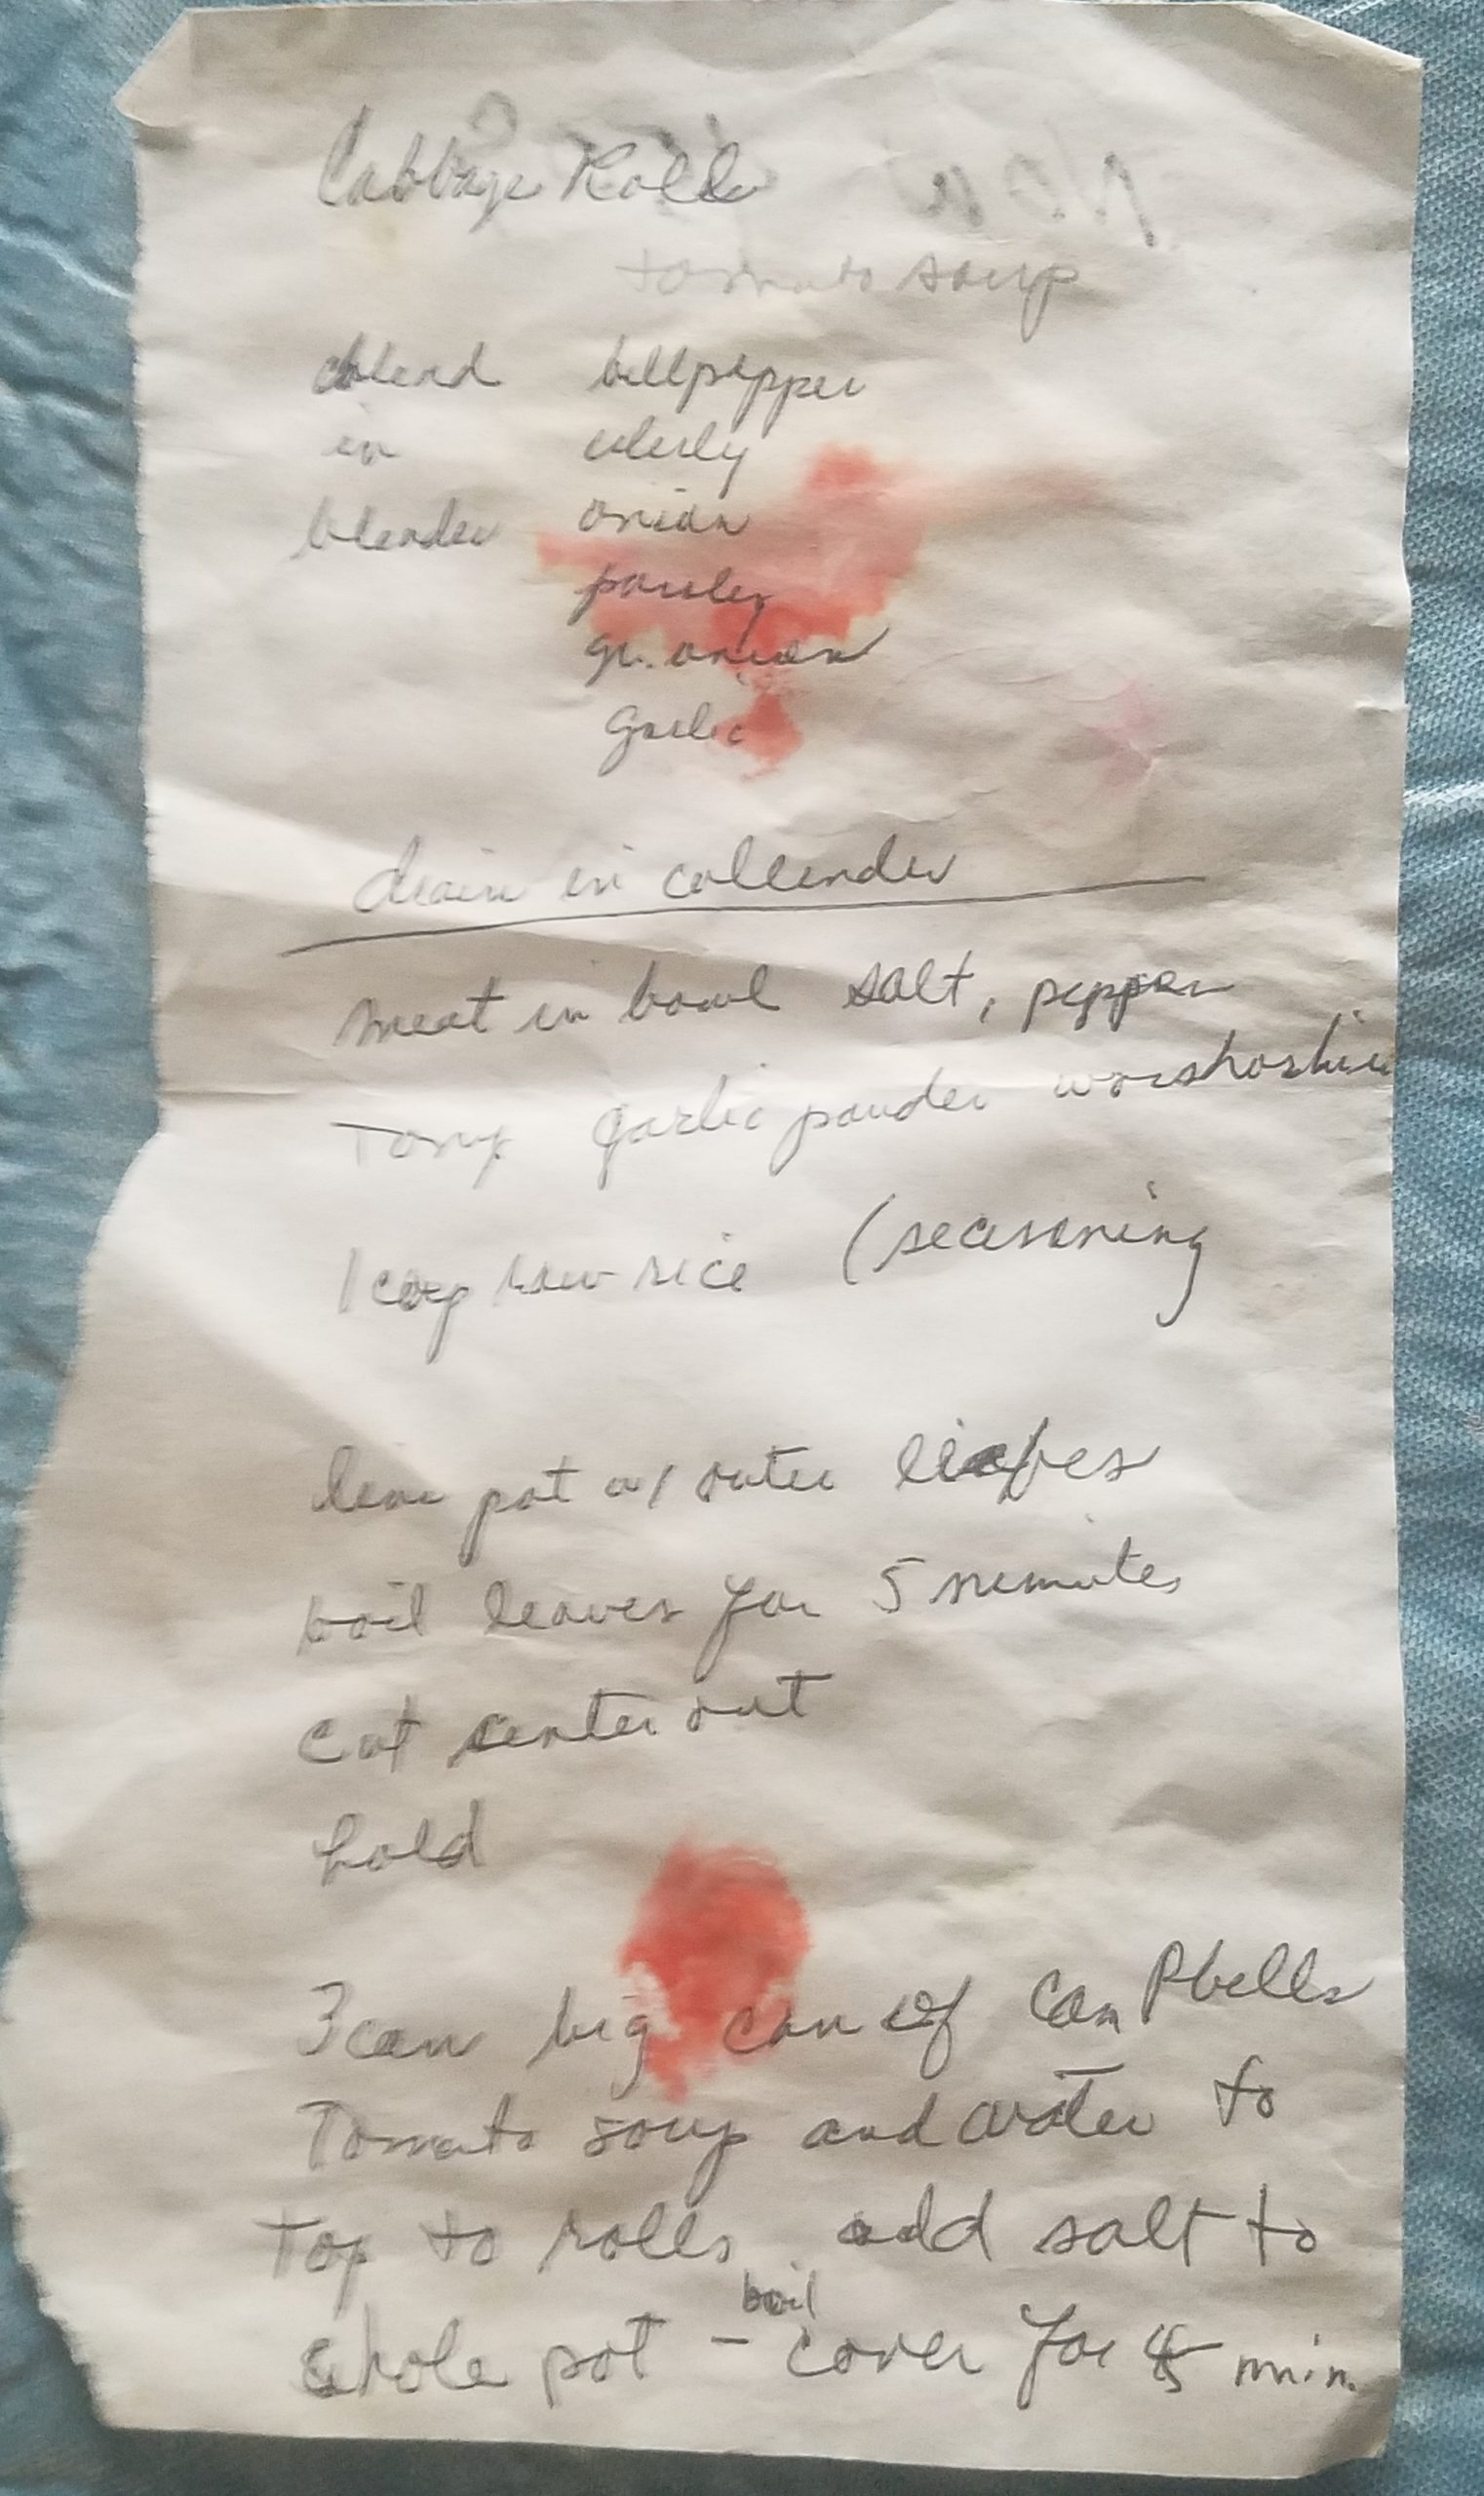 Cabbage Rolls
tomato soup
blend bellpepper
in celerly
blender onion
parsley
gr. onion
Garlic
drain in collender
meat in bowl salt, pepper
Tony garlic powder worshoshire
1 cup raw rice (seasoning
line pot w/ outer leaves
boil leaves for 5 minutes
cut center out
hold
3 can big can of Campbells
Tomato soup and water to
top to rolls. add salt to
whole pot - boil cover for 45 min.